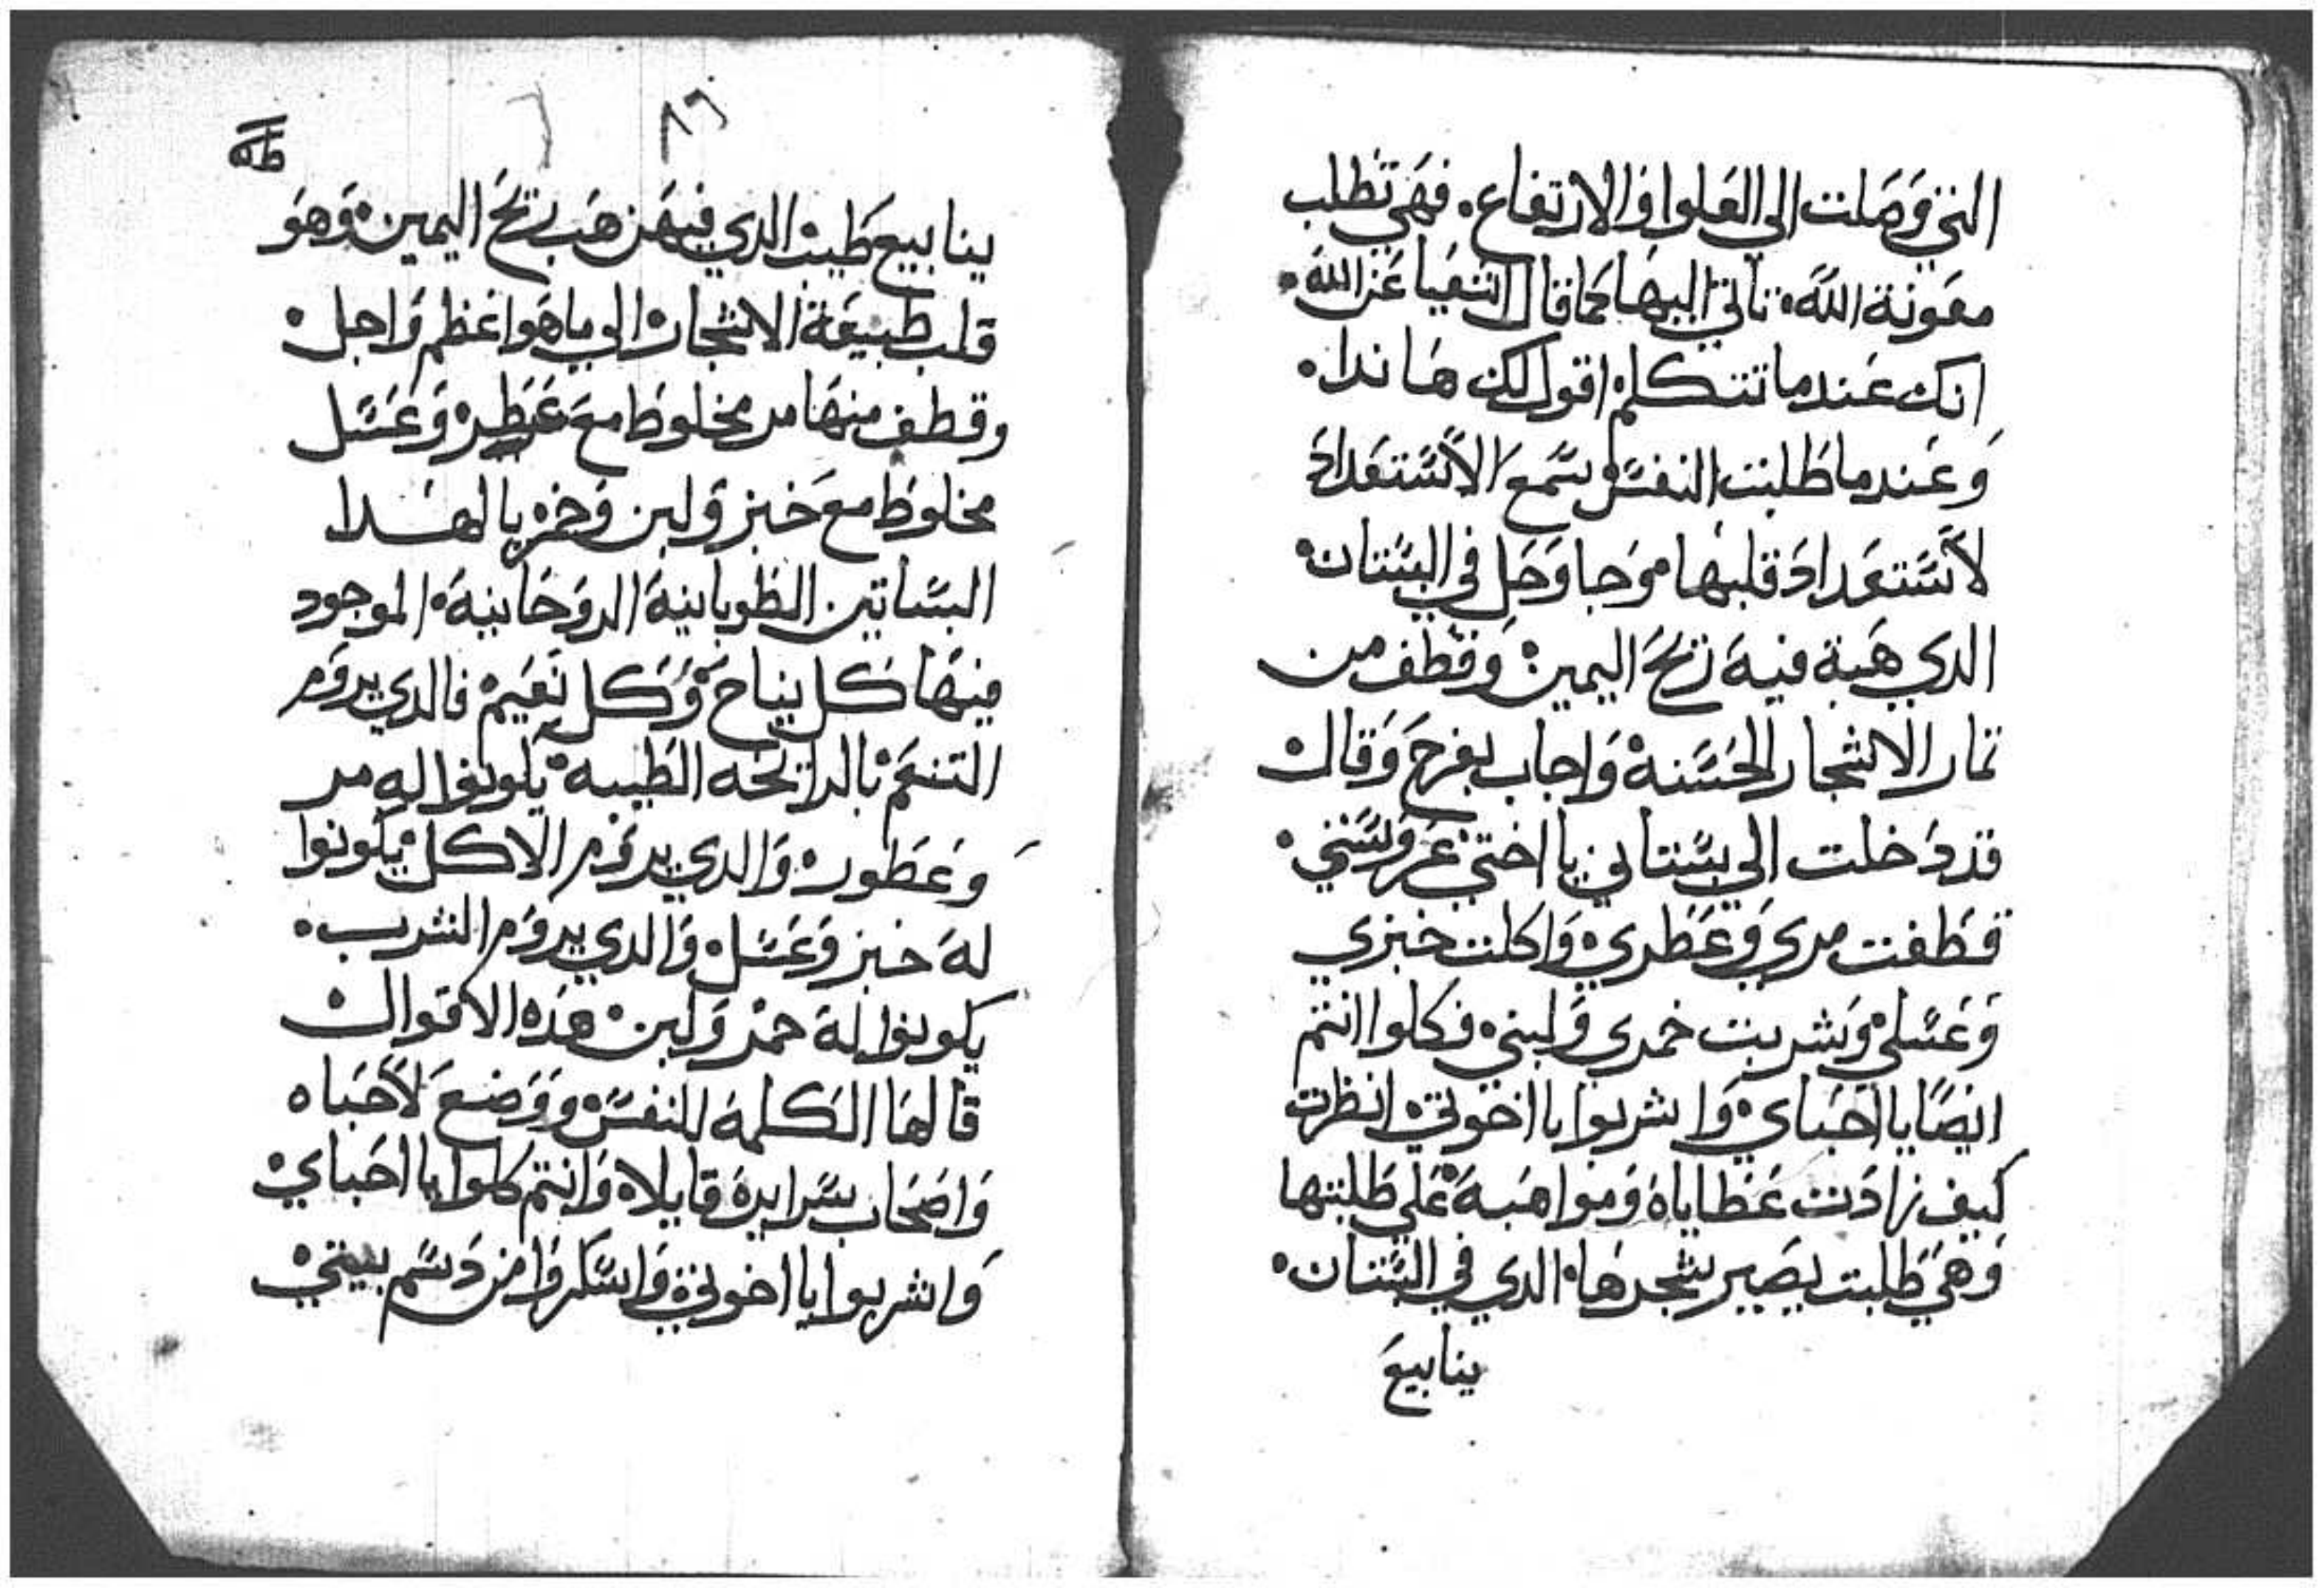 التي وَصَلت الي العَلوا وَالارتفاع. فهَي تَطلب
معَونة اللّه. تاتي اليهَا كما قال اشعَيا عَن اللّه.
انك عَندما تتكلم اقول لك هَا ندا.
وَعَندما طَلبت النفسَ سَمع الاَسَتعَدادَ
لاَسَتعَدادَ قلبهَا موَحبا وَحَل في البسَتان.
الدي هَبة فيهَ ريَحَ اليمين. وَقطَف من
تمار الاشجار الحسَنه وَاجاب بفرحَ وَقال
قد دَخلت الي بسَتاني يا اختي عَروَسَتي.
قطَفت مري وَعَطَري وَاكلت خبزي
وَعَسَلي وَشربت خمري وَلبني. فكلوا انتم
ايضًا يا احَباي وَاشربوا يا اخوتي انظرت
كيف زادَت عَطاياهَ وَمواهَبهَ عَلي طَلبتها
وَهَي طَلبت يصَير شجرهَا الدي في البسَتان.
ينابيعَ
٨٦
ينابيع طَيب الدي فيهَن هَب ريَحَ اليمين. وَهوَ
قلب طبيعَة الاشجار الي ما هَوا عَظم وَاجل.
وقطف منهَا مر مخلوطَ معَ عَطره وَعَسَل
مخلوطَ معَ خبز وَلبن وَخمر يا لهَدا
البسَاتين الطَوبانية الروَحَانية الموجود
فيهَا كل نياحَ وَكل نعَيم فالدي يروَم
التنعَم بالرايَحَه الطَيبه يَكونوا له مر
وَعَطور وَالدي يروَم الاكل يَكونوا
لهَ خبز وَعَسَل وَالدي يروَم الشرب.
يكونوا لهَ خمر وَلبن هَده الاقوال
قالهَا الكلمة للنفسَ ووَضعَ لاَحَباه
وَاصَحَاب سَرايره قايلا. وَانتم كلوا يا احَباي
وَاشربوا يا اخوتي وَاسَكروَا من دَسَم بيتي